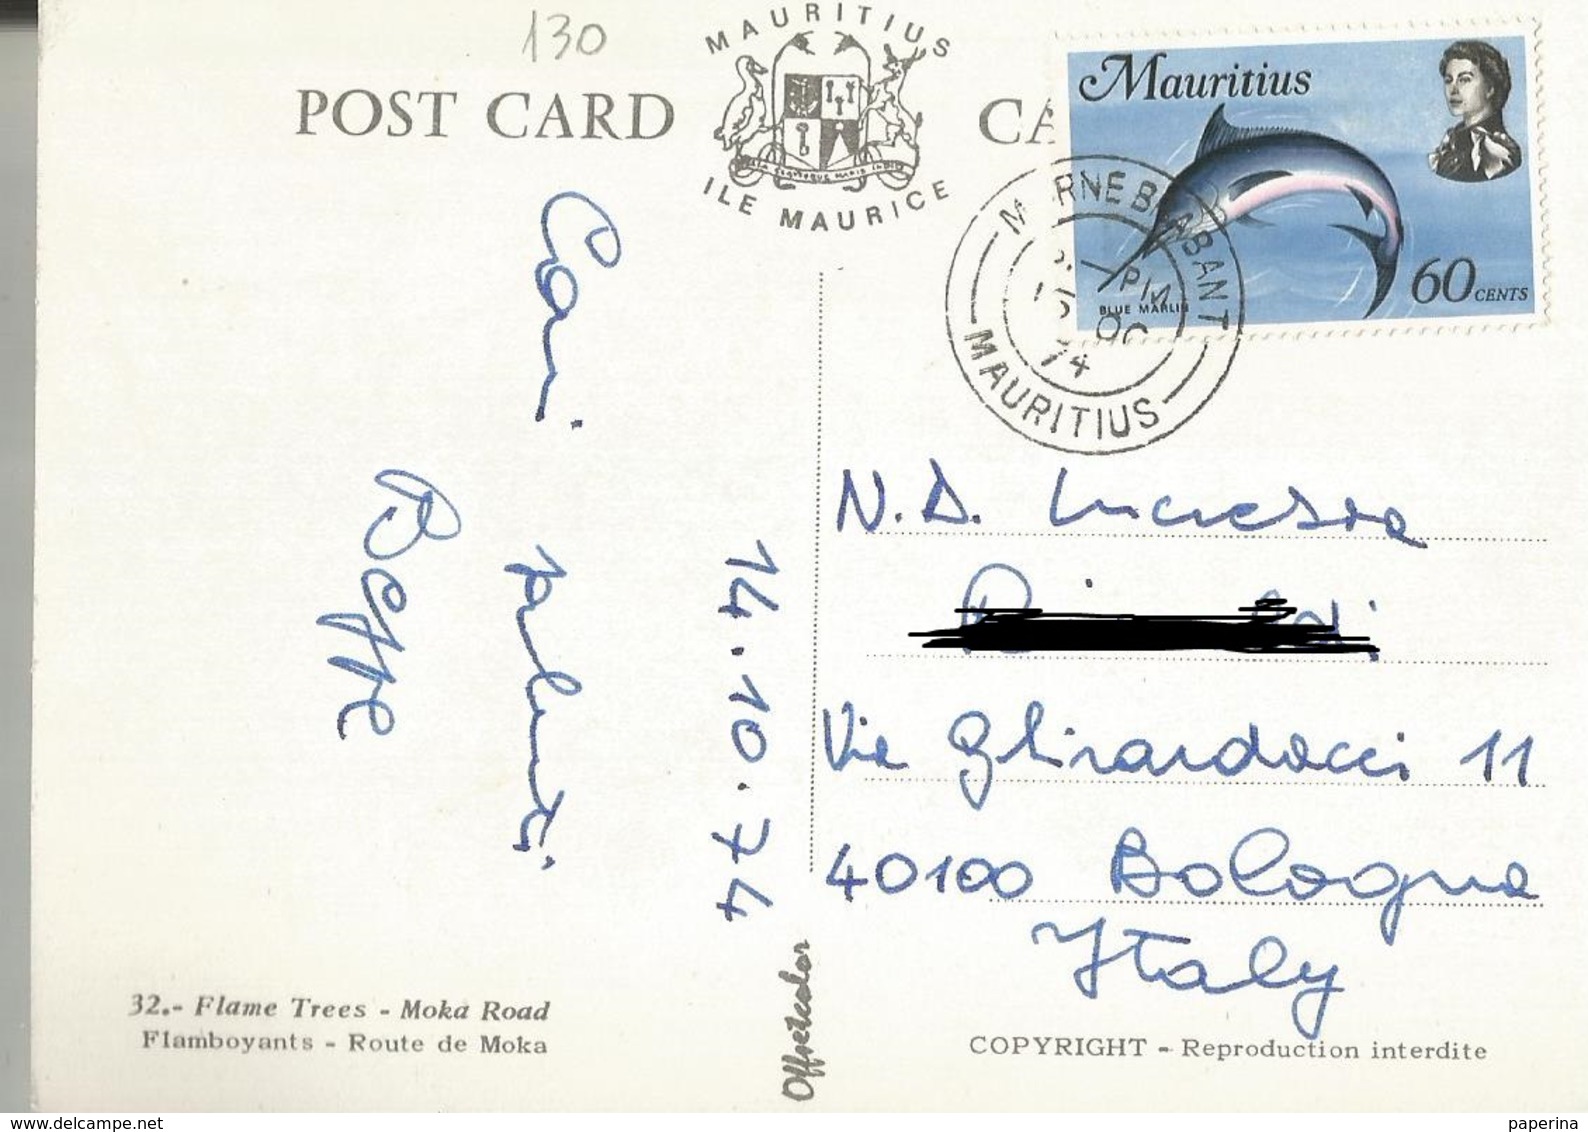 130
MAURITIUS
POST CARD
CA
ILE MAURICE
Mauritius
60 CENTS
BLUE MARLIN
PM
74
MAURITIUS
Cari
saluti
Beppe
14.10.74
N.D. Lucrezia
Via Ghirardacci 11
40100 Bologna
Italy
32.- Flame Trees - Moka Road
Flamboyants - Route de Moka
Offsetcolor
COPYRIGHT - Reproduction interdite
www.delcampe.net
paperina